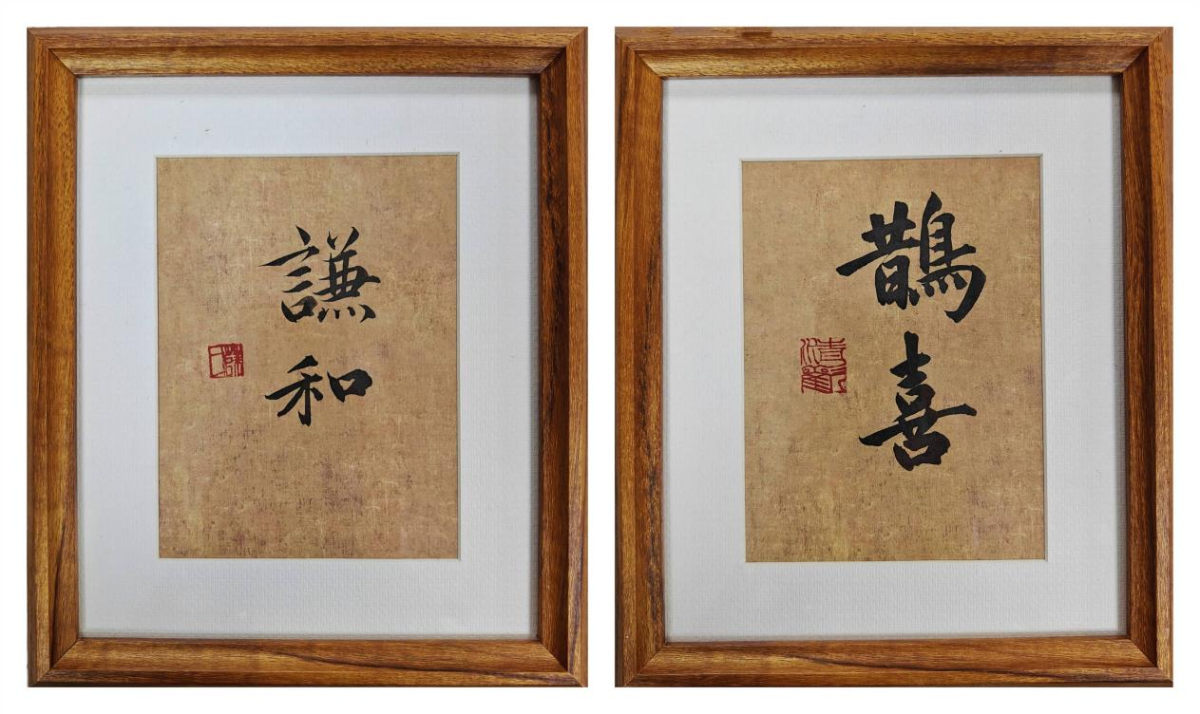 謙和
鵲喜